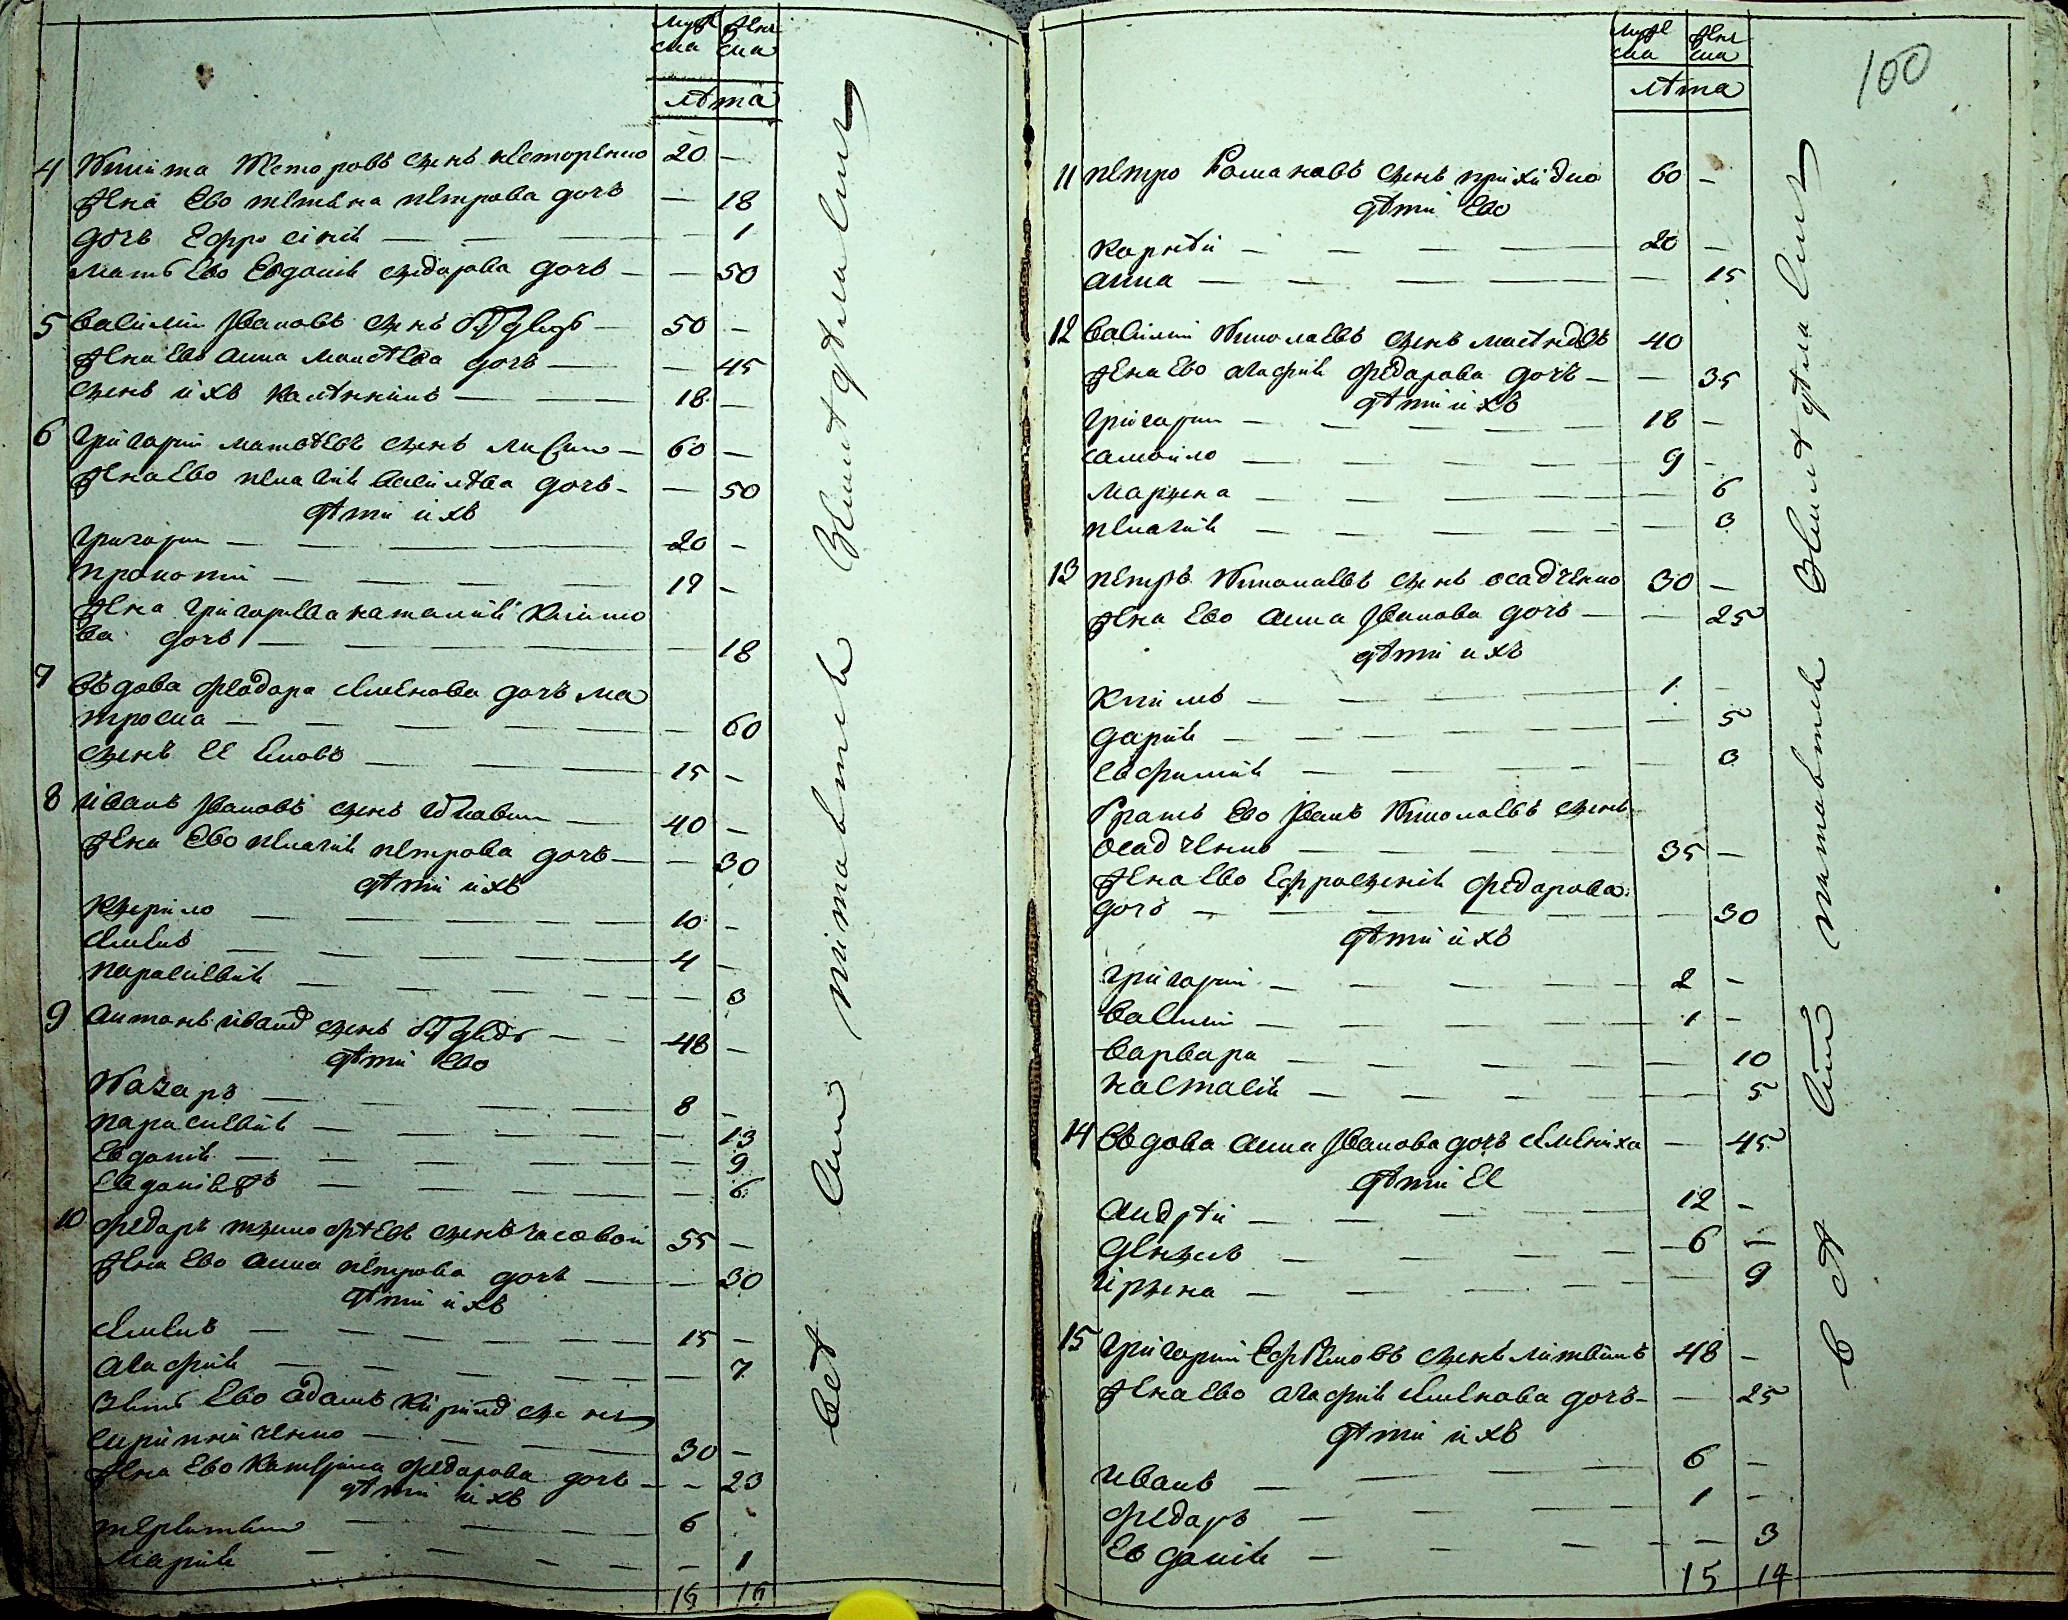 муже
ска
женс
ска
лѣта
4 Никита Неторовъ сынъ нестеренко 20 —
жена Ево тетяна петрова дочъ — 18
дочъ Ефросінія — 1
мать Ево Евдокія сидорова дочъ — 50
5 Василій Ивановъ сынъ — 50 —
жена Ево Анна Матвѣева дочъ — 45
сынъ ихъ калѣнникъ — 18 —
6 Григорій матвѣевъ сынъ — 60 —
жена Ево пелагія василѣва дочъ — 50
дѣти ихъ
Григорій — 20 —
прокопій — 17 —
жена григорева наталія климо
ва дочъ — 18
7 въдова федора семенова дочъ ма
троска — 60
сынъ ее яковъ — 15 —
8 иванъ Ивановъ сынъ — 40 —
жена Ево пелагія петрова дочъ — 30
дѣти ихъ
кырило — 10 —
4 —
парасковія — 3
9 антонъ иванов сынъ — 48 —
дѣти Ево
Назаръ — 8 —
парасковія — 13
Евдокія — 9
Евдокія жъ — 6
10 федаръ тимофѣевъ сынъ часовой 55 —
жена Ево анна петрова дочъ — 30
дѣти ихъ
15 —
агафія — 7
зять Ево адамъ киридов сынъ
скрипниченко — 30 —
жена Ево катерина федарова дочъ — 23
дѣти ихъ
терентій 6
марія — 1
15 16
всѣ они питаются земледѣлаемъ
100
муже
ска
женс
ска
лѣта
11 петро Романовъ сынъ приходко 60 —
дѣти Ево
карнѣй — 20 —
анна — 15
12 василій Николаевъ сынъ 40
жена Ево агафія федарова дочъ — 35
дѣти ихъ
григорій — 18 —
самойло — 9 —
марына — 6
пелагія — 3
13 петръ Николаевъ сынъ осадченко 30 —
жена Ево анна Иванова дочъ — 25
дѣти ихъ
климъ — 1 —
дарія — 5
евфимія — 3
братъ Ево Иванъ Николаевъ сынъ
осадченко — 35 —
жена Ево Ефросынія федарова
дочъ — 30
дѣти ихъ
григорій — 2 —
василій — 1 —
варвара — 10
настасія — 5
14 въдова анна Иванова дочъ семениха — 45
дѣти Ее
андрѣй — 12 —
денысъ — 6 —
ірына — 9
15 Григорій Ефимовъ сынъ литвинъ 48 —
жена Ево агафія семенова дочъ — 25
дѣти ихъ
иванъ — 6 —
федаръ — 1 —
Евдокія — 3
15 14
всѣ они питаются земледѣлаемъ